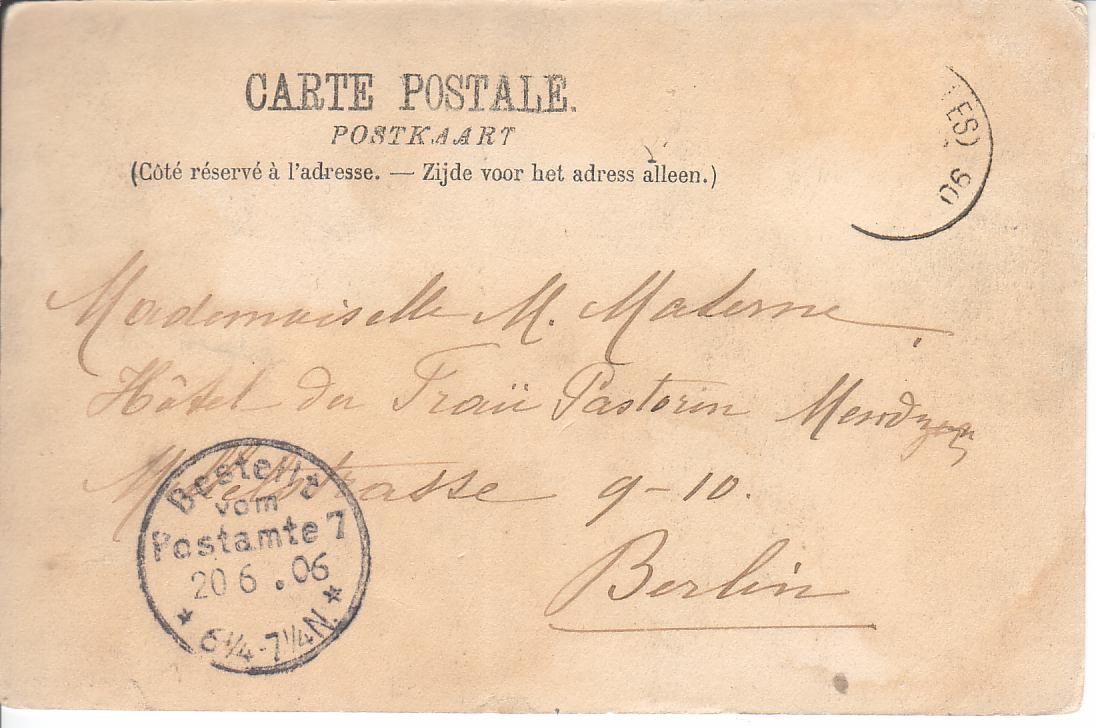 CARTE POSTALE.
POSTKAART
(Côté réservé à l'adresse. — Zijde voor het adress alleen.)
ES)
06
Mademoiselle M. Materne
Hôtel du Fraü Pastorin
9-10.
Berlin
Bestellt
vom
Postamte 7
20 6 . 06
* 6 1/4-7 1/4 N. *